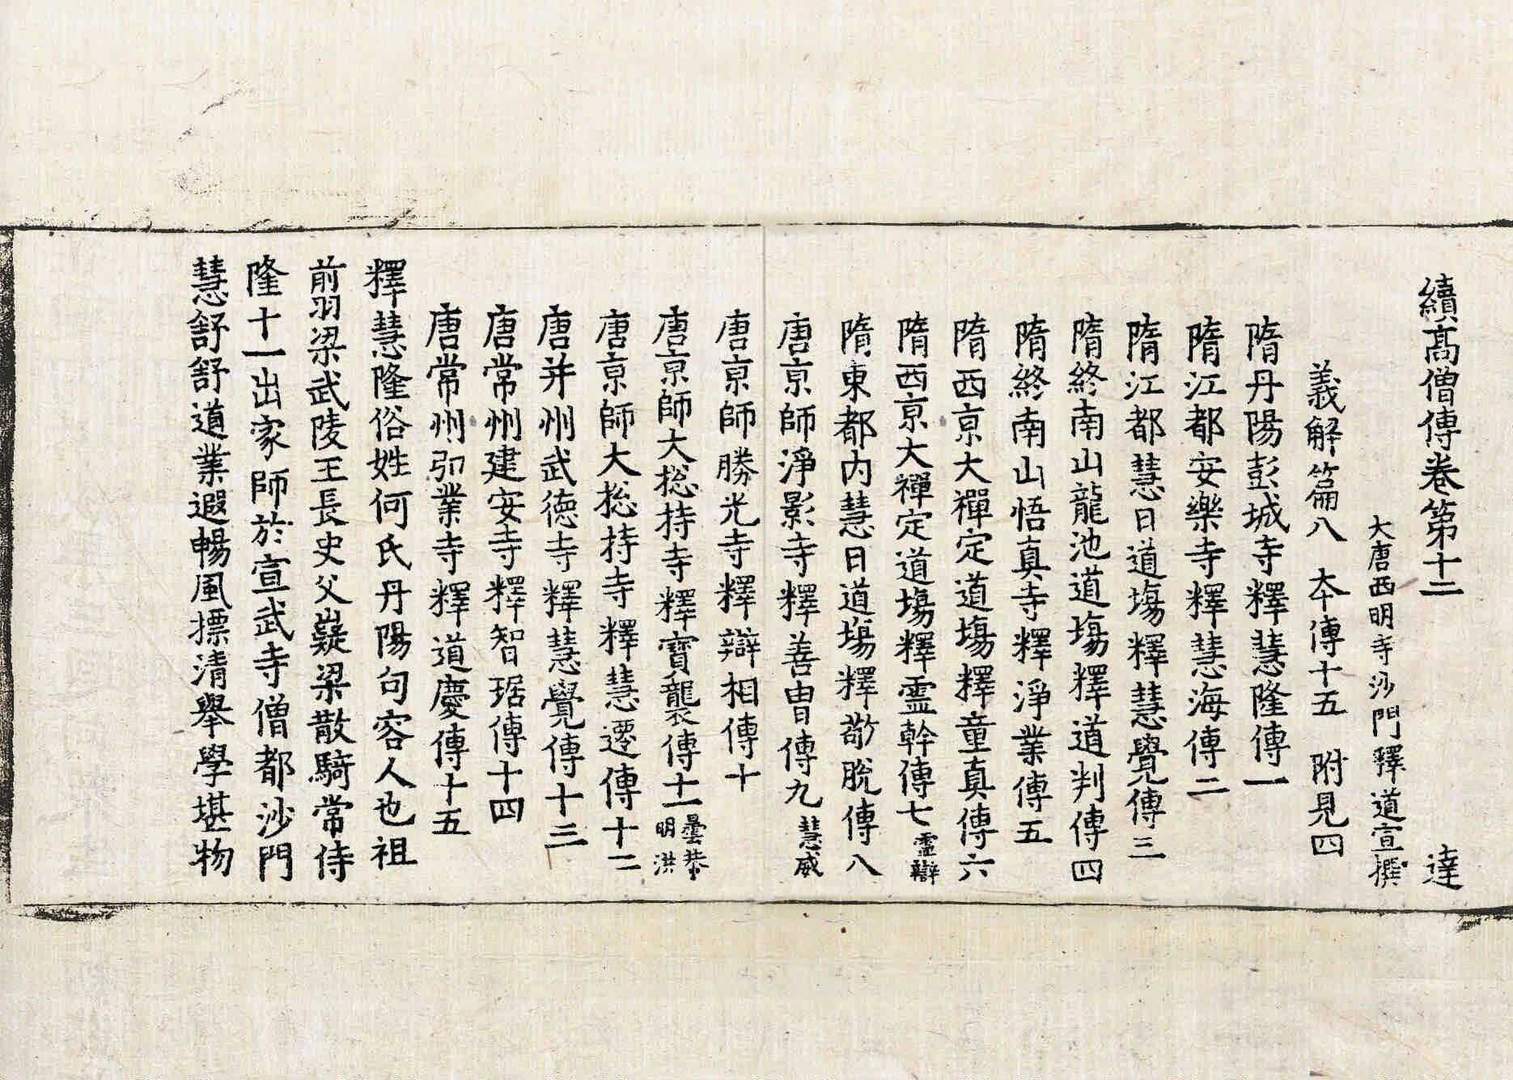 續髙僧傳卷第十二 達
大唐西明寺沙門釋道宣撰
義解篇八 夲傳十五 附見四
隋丹陽彭城寺釋慧隆傳一
隋江都安樂寺釋慧海傳二
隋江都慧日道塲釋慧覺傳三
隋終南山龍池道塲釋道判傳四
隋終南山悟真寺釋淨業傳五
隋西京大禪定道塲釋童真傳六
隋西京大禪定道塲釋靈幹傳七 靈辯
隋東都内慧日道塲釋敬脫傳八
唐京師淨影寺釋善冑傳九 慧威
唐京師勝光寺釋辯相傳十
唐京師大捴持寺釋寶襲傳十一 曇恭 明洪
唐京師大捴持寺釋慧遷傳十二
唐并州武德寺釋慧覺傳十三
唐常州建安寺釋智琚傳十四
唐常州弘業寺釋道慶傳十五
釋慧隆俗姓何氏丹陽句容人也祖
前羽梁武陵王長史父嶷梁散騎常侍
隆十一出家師於宣武寺僧都沙門
慧舒舒道業遐暢風摽清舉學堪物